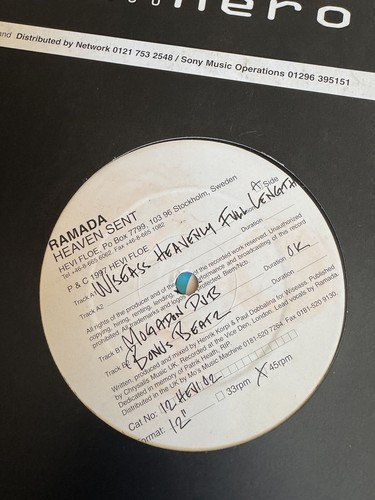 hero
and Distributed by Network 0121 753 2548 / Sony Music Operations 01296 395151
RAMADA
HEAVEN SENT
HEVI FLOE, Po Box 7799, 103 96 Stockholm, Sweden
Tel +46-8-665 6062, Fax +46-8-665 1082
P & C 1997 HEVI FLOE
A Side
Track A1 WISEASS HEAVENLY FULL LENGTH
Track A2 Duration
All rights of the producer and of the owner of the recorded work reserved. Unauthorized
copying, hiring, renting, lending, public performance and broadcasting of this record
prohibited. All trademarks and logos are protected items.
Duration OK
Track B1 MOGADON DUB
Track B BONUS BEATZ Duration
Written, produced and mixed by Henrik Korpi & Paul Dobbaling for Wiseass. Published
by Chrysalis Music UK. Recorded at the Vice Den, London. Lead vocals by Ramada.
Dedicated in memory of Patrik Heath, RIP.
Distributed in the UK by Mo's Music Machine 0181-520 7264. Fax 0181-520 9130.
Cat No: 12 HEVI 02 33rpm X 45rpm
ormat: 12"